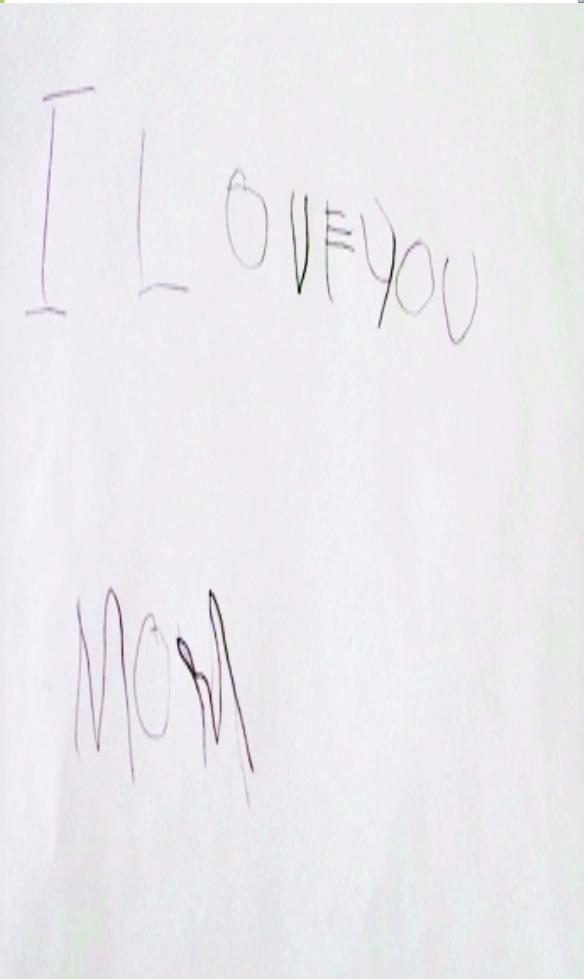 I LOVE YOU
MOM